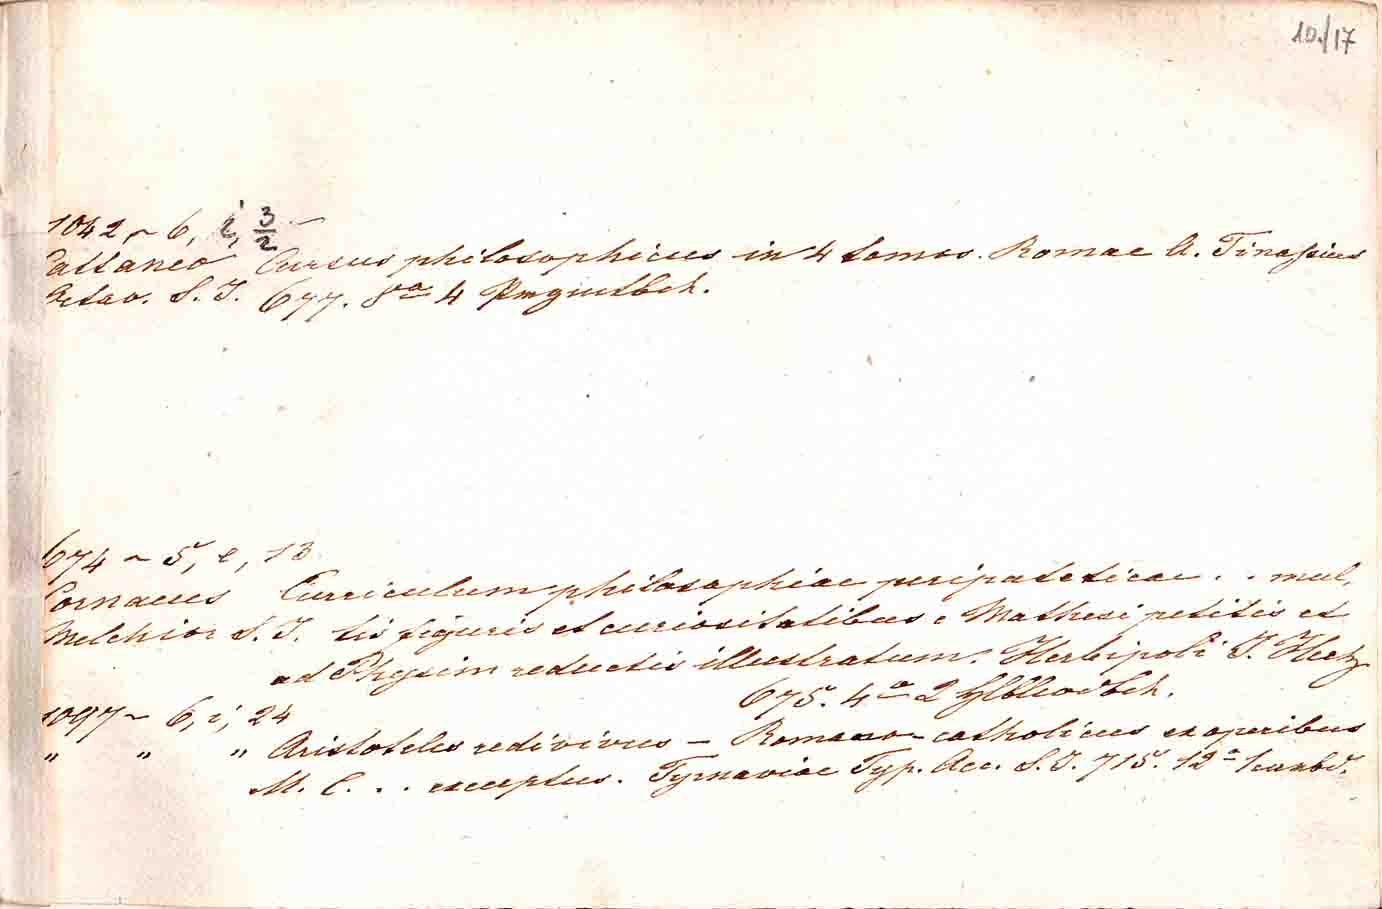 10./17
1042 ~ 6, i, 3/2 —
Cattaneo Cursus philosophicus in 4 tomos. Romae A. Tinassius
Octav. S. J. 677. 8o 4 Prngmtbch.
674 ~ 5, e, 13
Cornaeus Curriculum philosophiae peripateticae . . mul,
Melchior S. J. tis figuris et curiositatibus e Mathesi petitis et
ad Physim reductis illustratum. Herbipoli J. Hertz
675. 4o 2 Hlbldrbch.
1097 ~ 6, i, 24
" " " Aristoteles redivivus – Romano-catholicus ex operibus
M. C. . . exceptus. Tyrnaviae Typ. Acc. S. J. 715. 12o 1